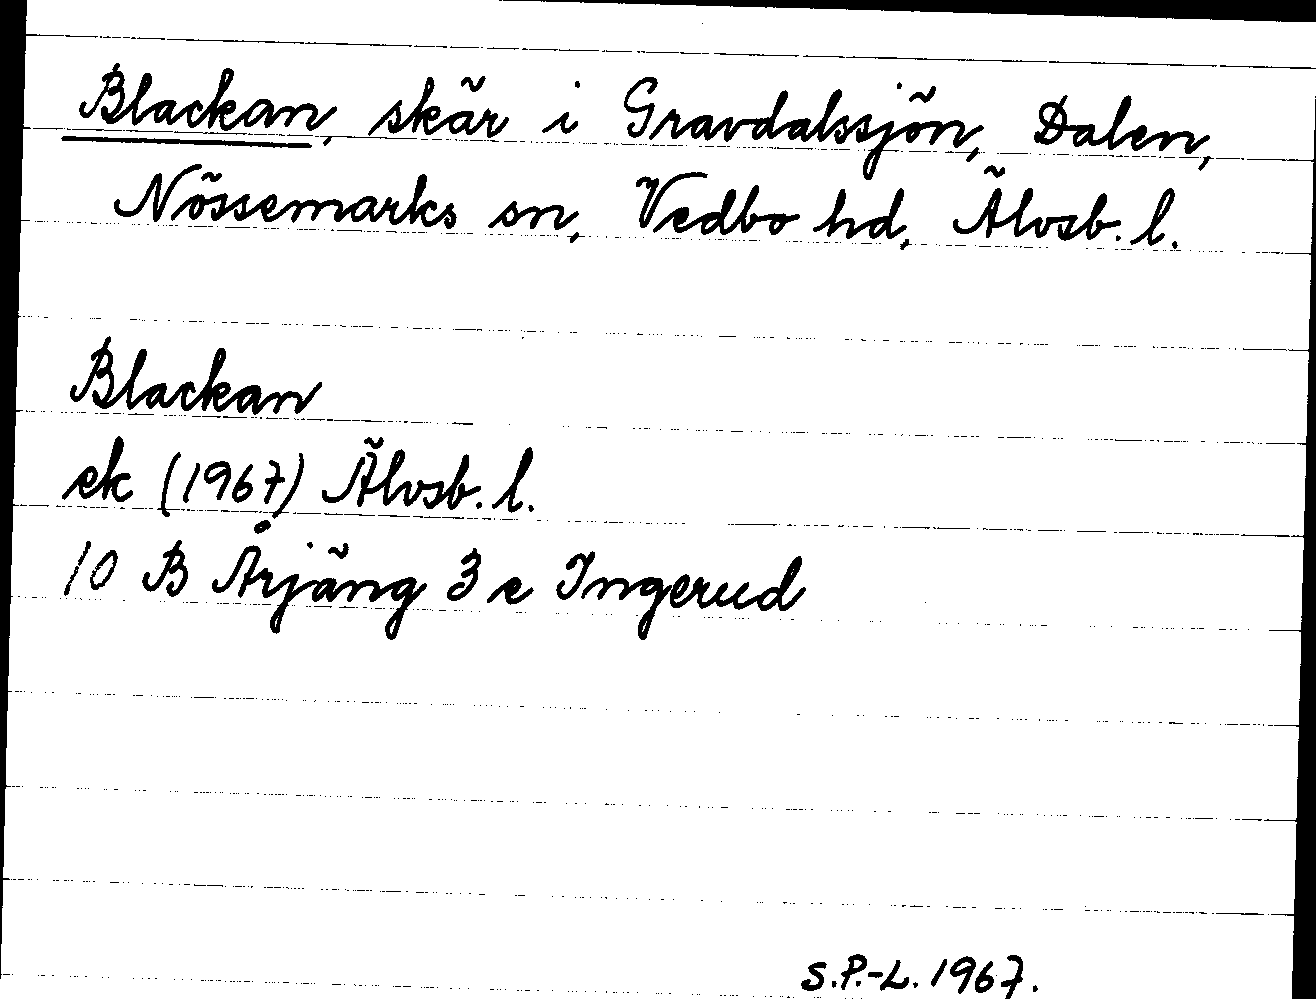 Blackan, skär i Gravdalssjön, Dalen,
Nössemarks sn, Vedbo hd, Älvsb. l.
Blackan
ek (1967) Älvsb. l.
10 B Årjäng 3 e Ingerud
S.P.-L. 1967.